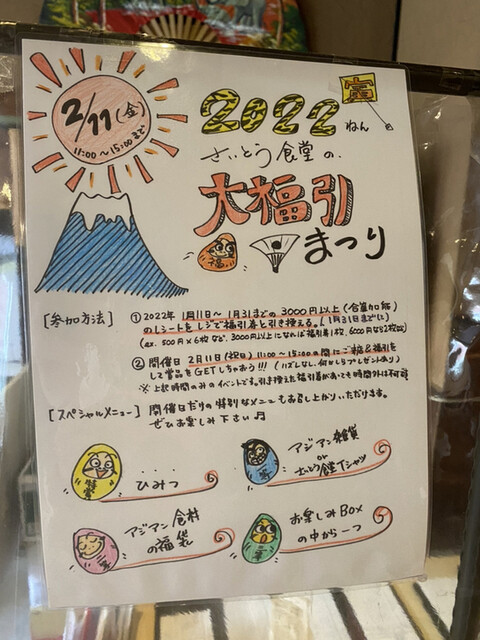 2/11(金)
11:00~15:00まで
2022ねん
さいとう食堂の、
大福引
まつり
[参加方法] ①2022年 1月11日~1月31日までの3000円以上(合算加能)
のレシートをレジで福引券と引き換える。(1月31日までに)
(ex. 500円×6枚など、3000円以上になれば福引券1枚、6000なら2枚)
②開催日 2月11日(祝日) 11:00~15:00の間にご来店&福引を
して賞品をGETしちゃおう!!! (ハズレなし、何かしらプレゼントあり)
※上記時間のみのイベントです。引き換えた福引券があっても時間外は不可
[スペシャルメニュー] 開催日だけの特別なメニューもお召し上がりいただけます。
ぜひお楽しみ下さい♫
ひみつ
アジアン雑貨
or
さいとう食堂Tシャツ
アジアン食材
の福袋
お楽しみBox
の中から一つ